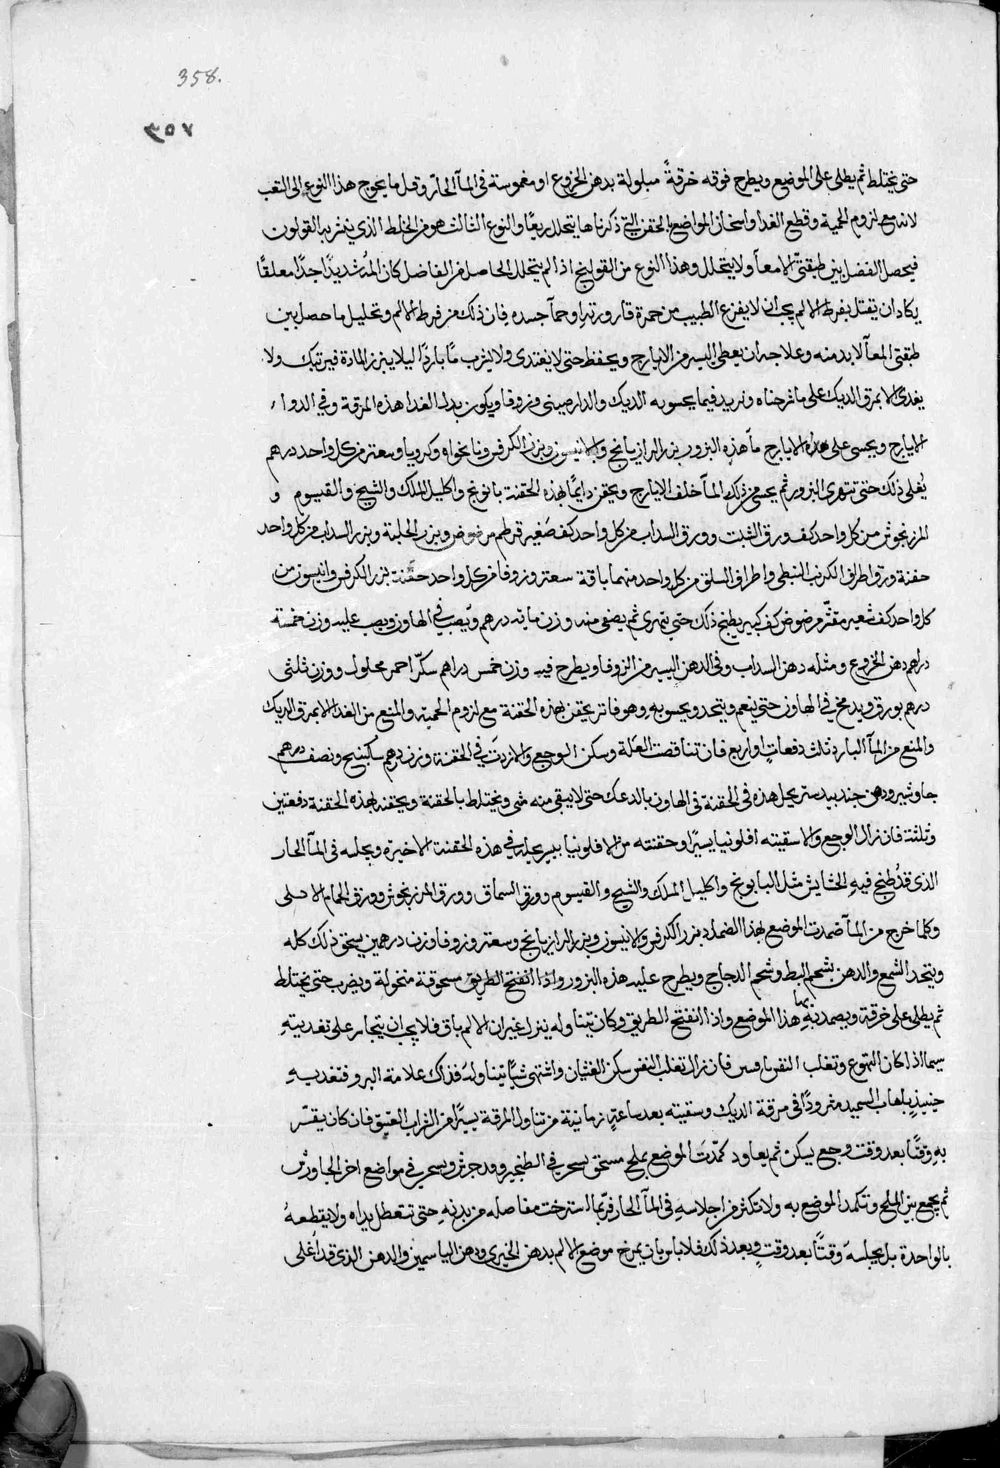 358.
٣٥٧
حتى يختلط ثم يطلى على الموضع ويطرح فوقه خرقةً مبلولة بدهن الخروع او مغموسة فى المآ الحار وقل ما يحوج هذا النوع الى التعب
لانه مع لزوم الحمية وقطع الغدا واسخان المواضع بالحقن التى ذكرناها يتحلل ريعًا والنوع الثالث هو من الخلط الذى ينزيه القولون
فيحصل الفضل بين طبقتى الامعآ ولا يتحلل وهذا النوع من القولنج اذا لم يتحلل الحاصل من الفاضل كان المُ شديدًا جدًا معلقًا
يكاد ان يقتل بفرط الالم يجب ان لا يفزع الطبيب من حمرة قارورته او حمآ جسده فان ذلك من فرط الالم وتحليل ما حصل بين
طبقتى المعآ لا بد منه وعلاجه ان يعطى اليسير من الايارج ويحفظ حتى لا يغتدى ولا يشرب مآ باردًا ليلا يبرز المادة فيرتبك ولا
يغدى الا بمرق الديك على ما شرحناه ونريد فيما يحسو به الديك والدارصينى وزوفا ويكون بدل الغدا هذه المرقة وفى الدوا
الايارج ويحسى على هذه الايارج مآ هذه البزور بزر الرازيانج والانيسون وبزر الكرفس ونانخواه وكرويا وسعتر من كل واحد درهم
يُغلى ذلك حتى تتهرى البزور ثم يحسى من ذلك المآ خلف الايارج ويحقن دايمًا بهذه الحقنة بابونج واكليل الملك والشيح والقيسوم و
المرزنجوش من كل واحد كف ورق الشبت وورق السداب من كل واحد كف صغير قرطم مرضوض وبزر الحلبة وبزر السداب من كل واحد
حفنة ورق اطراف الكرنب النبطى واطراف السلق من كل واحد منهما باقة سعتر وزوفا من كل واحد حفنة بزر الكرفس وانيسون من
كل واحد كف شعير مقشّر مرضوض كف كبير يطبخ ذلك حتى يتهرى ثم يصفى منه وزن مايه درهم ويصب فى الهاون ويصب عليه وزن خمسة
دراهم دهن الخروع ومثله دهن السداب وفى الدهن اليسير من الزوفا ويطرح فيه وزن خمس دراهم سكّر احمر محلول ووزن ثلثى
درهم بورق ويدمخ فى الهاون حتى ينعم ويتحد ويحسو به وهو فاتر يحقن بهذه الحقنة مع لزوم الحميه والمنع من الغدا الا بمرق الديك
والمنع من المآ البارد ثلث دفعات او اربع فان تناقصت العلة وسكن الوجع والا زدت فى الحقنة وزن درهم سكبينج ونصف درهم
جاوشير ودهن جندبيدستر يحل هذه فى الحقنة فى الهاون بالدعك حتى لا يبقى منه شى ويختلط بالحقنة ويحقنه بهذه الحقنة دفعتين
وثلثة فان زال الوجع والا سقيته افلونيا يسيرًا وحقنته من الافلونيا بيسير يحل فى هذه الحقنة الاخيرة ويجلسه فى المآ الحار
الذى قد طُبخ فيه الحشايش مثل البابونج واكليل الملك والشيح والقيسوم وورق السماق وورق المرزنجوش وورق الحمام الاصلى
وكلما خرج من المآ ضمدت الموضع بهذا الضماد بزر الكرفس والانيسون وبزر الرازيانج وسعتر وزوفا وزن درهمين يسحق ذلك كله
ويتخد الشمع والدهن بشحم البط وشحم الدجاج ويطرح عليه هذه البزور واذا انفتح الطريق مسحوقة منخولة ويضرب حتى يختلط
ثم يطلى على خرقة ويضمد به هذا الموضع واذا انفتح الطريق وكان يتناوله ينزل غير ان الالم باق فلا يجب ان يتجاسر على تغديتهِ
سيما اذا كان التهوع وتقلب النفس فان زال تقلب النفس سكن الغثيان واشتهى شيًا يتناولهُ فذلك علامة البرو فتغديهِ
حينيذٍ بلباب السميد مثرودًا فى مرقة الديك وسقيته بعد ساعةٍ زمانية من تناول المرقة يسيرًا من الشراب العتيق فان كان يفتّر
بهِ وقتًا بعد وقت وجع يسكن ثم يعاود كمّدت الموضع بملح مسحوق يسحن فى الطنجير وجاورس ويسحن فى مواضع اخر الجاورس
ثم يجمع بين الملح وتكمد الموضع به ولا تكثر من اجلاسهِ فى المآ الحار فربما استرخت مفاصله من بدنهِ حتى تتعطل يداه ولا يقطعهُ
بالواحدة بل يجلسهُ وقتًا بعد وقتٍ وبعد ذلك فلا باس بان يمرخ موضع الالم بدهن الخيرى ودهن الياسمين والدهن الذى قد اُغلى